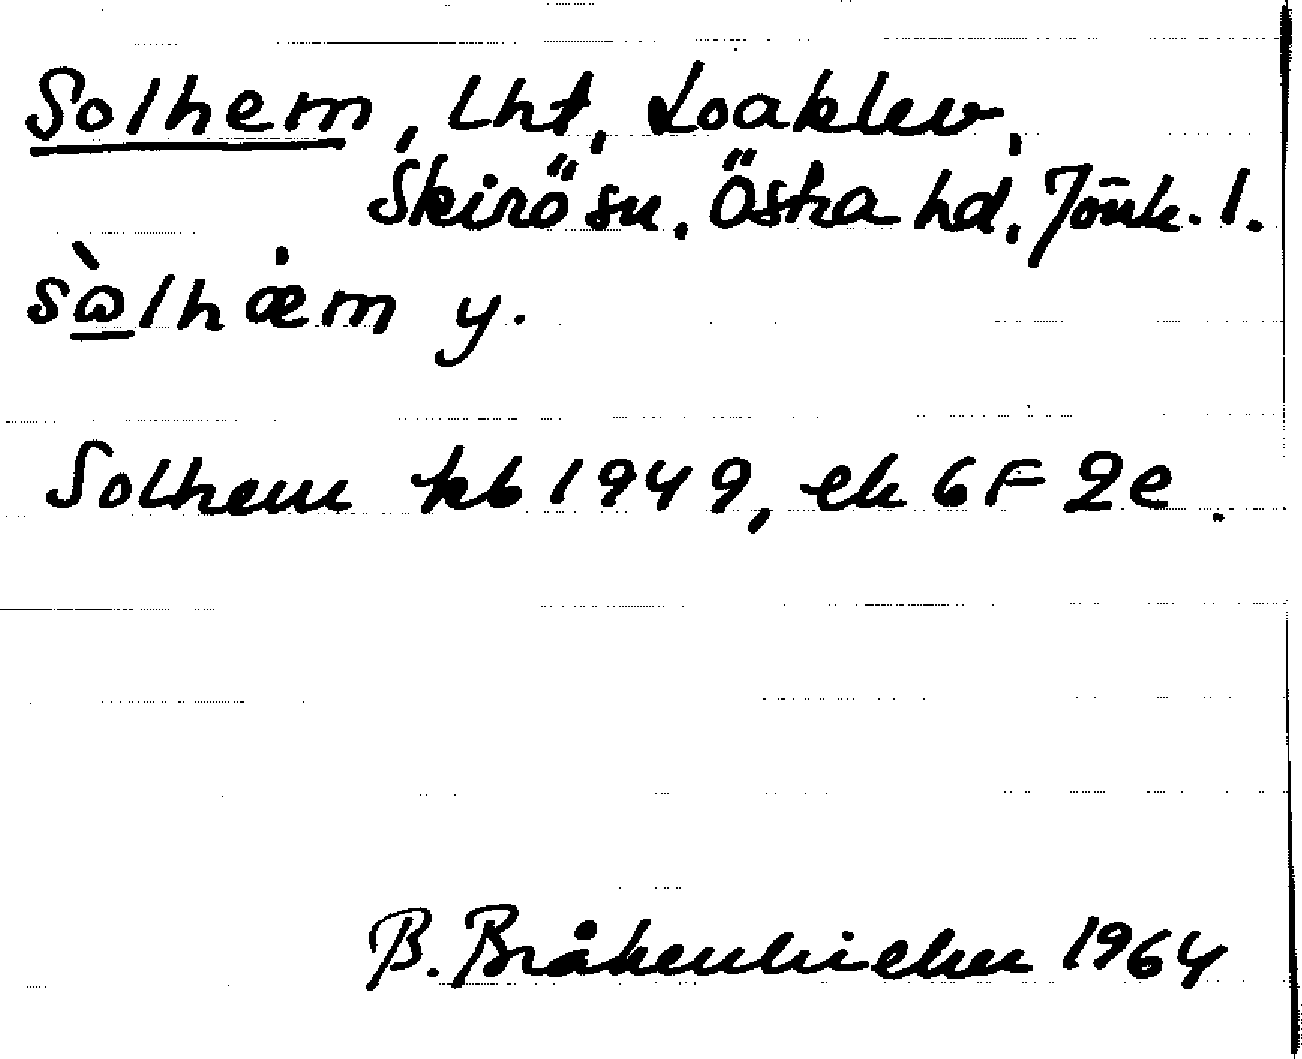 Solhem, Lht, Loaklev,
Skirö sn. Östra hd, Jönk. l.
sὼlhæ̇m y.
Solhem kb 1949, ek 6F 2e.
B. Bråkenhielm 1964